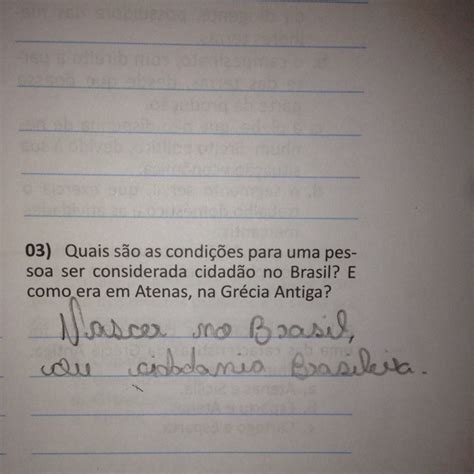 03) Quais são as condições para uma pes-
soa ser considerada cidadão no Brasil? E
como era em Atenas, na Grécia Antiga?
Nascer no Brasil,
ou cidadania Brasileira.